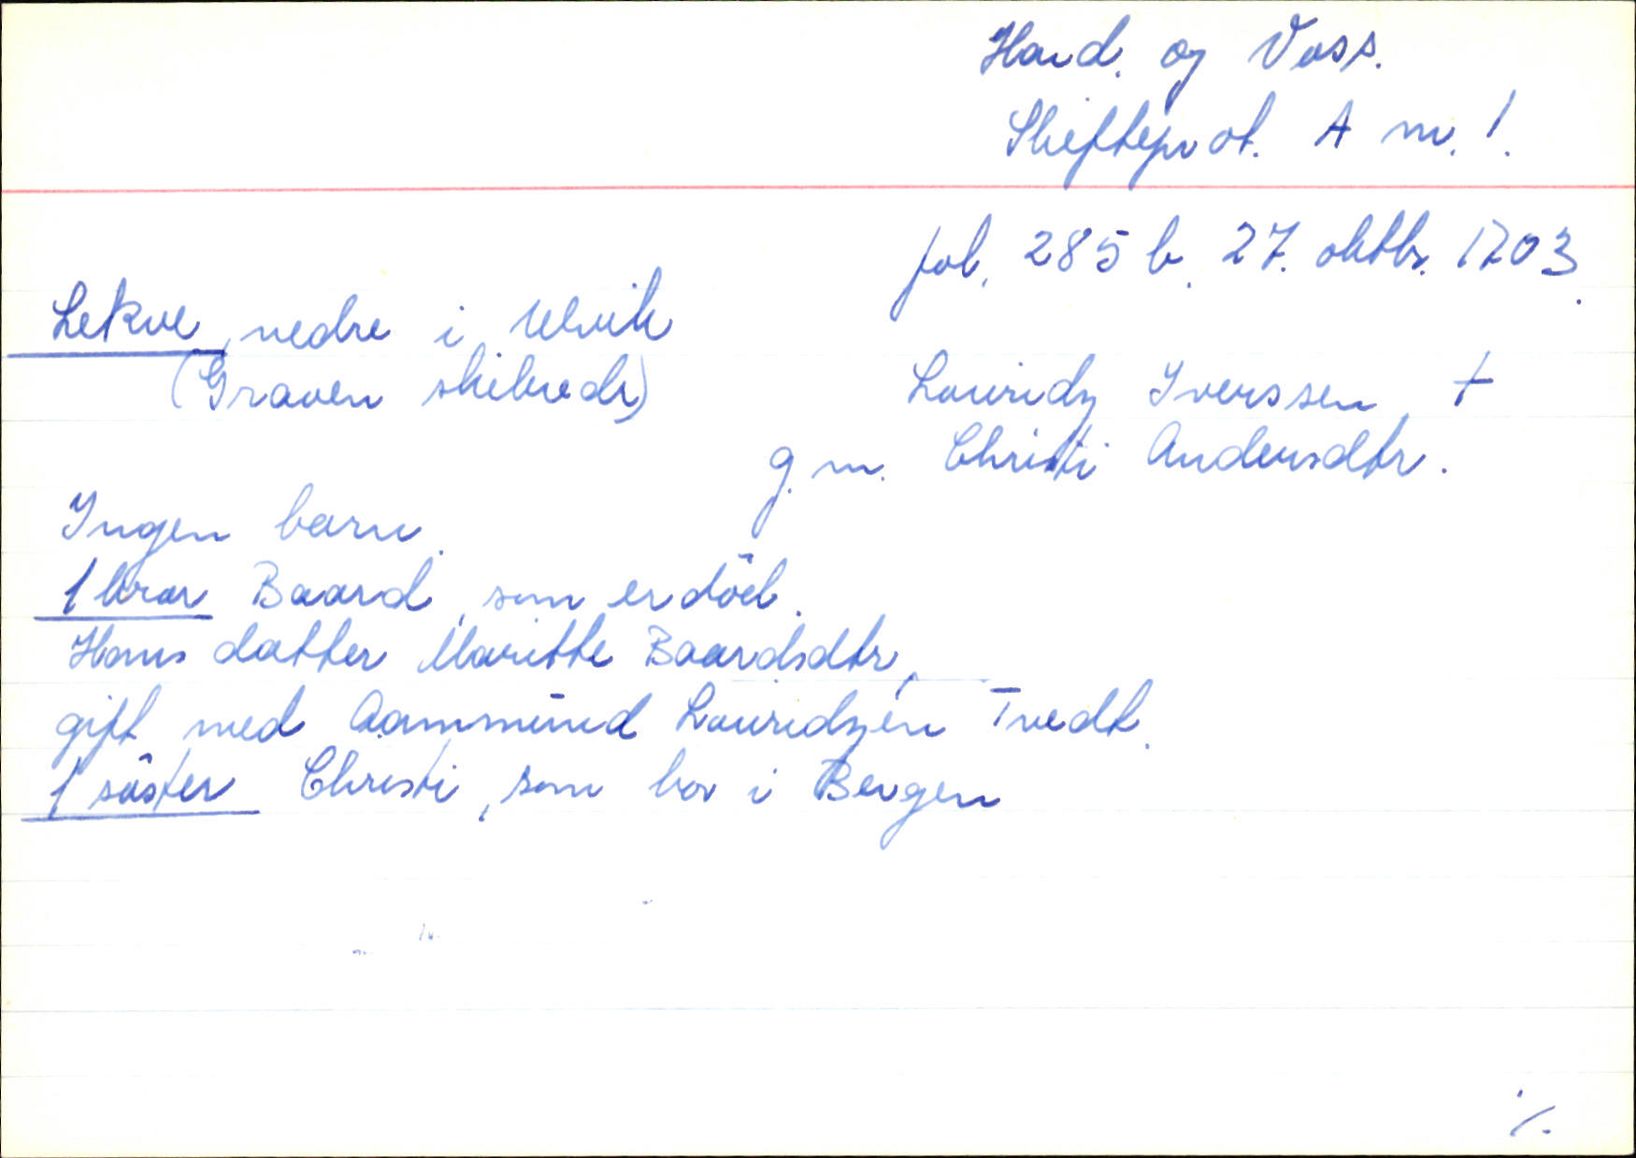 Hard. og Voss.
Skifteprot. A nr. 1.
fol. 285 b. 27. oktbr. 1703.
Lekve, nedre i Ulvik
(Graven skibrede)
Louridz Iverssen †
g. m. Christi Andersdtr.
Ingen barn.
1 bror Baard, som er död.
Hans datter Maritte Baardsdtr,
gift med Aammund Louridzen Tvedt.
1 söster Christi, som bor i Bergen
%.